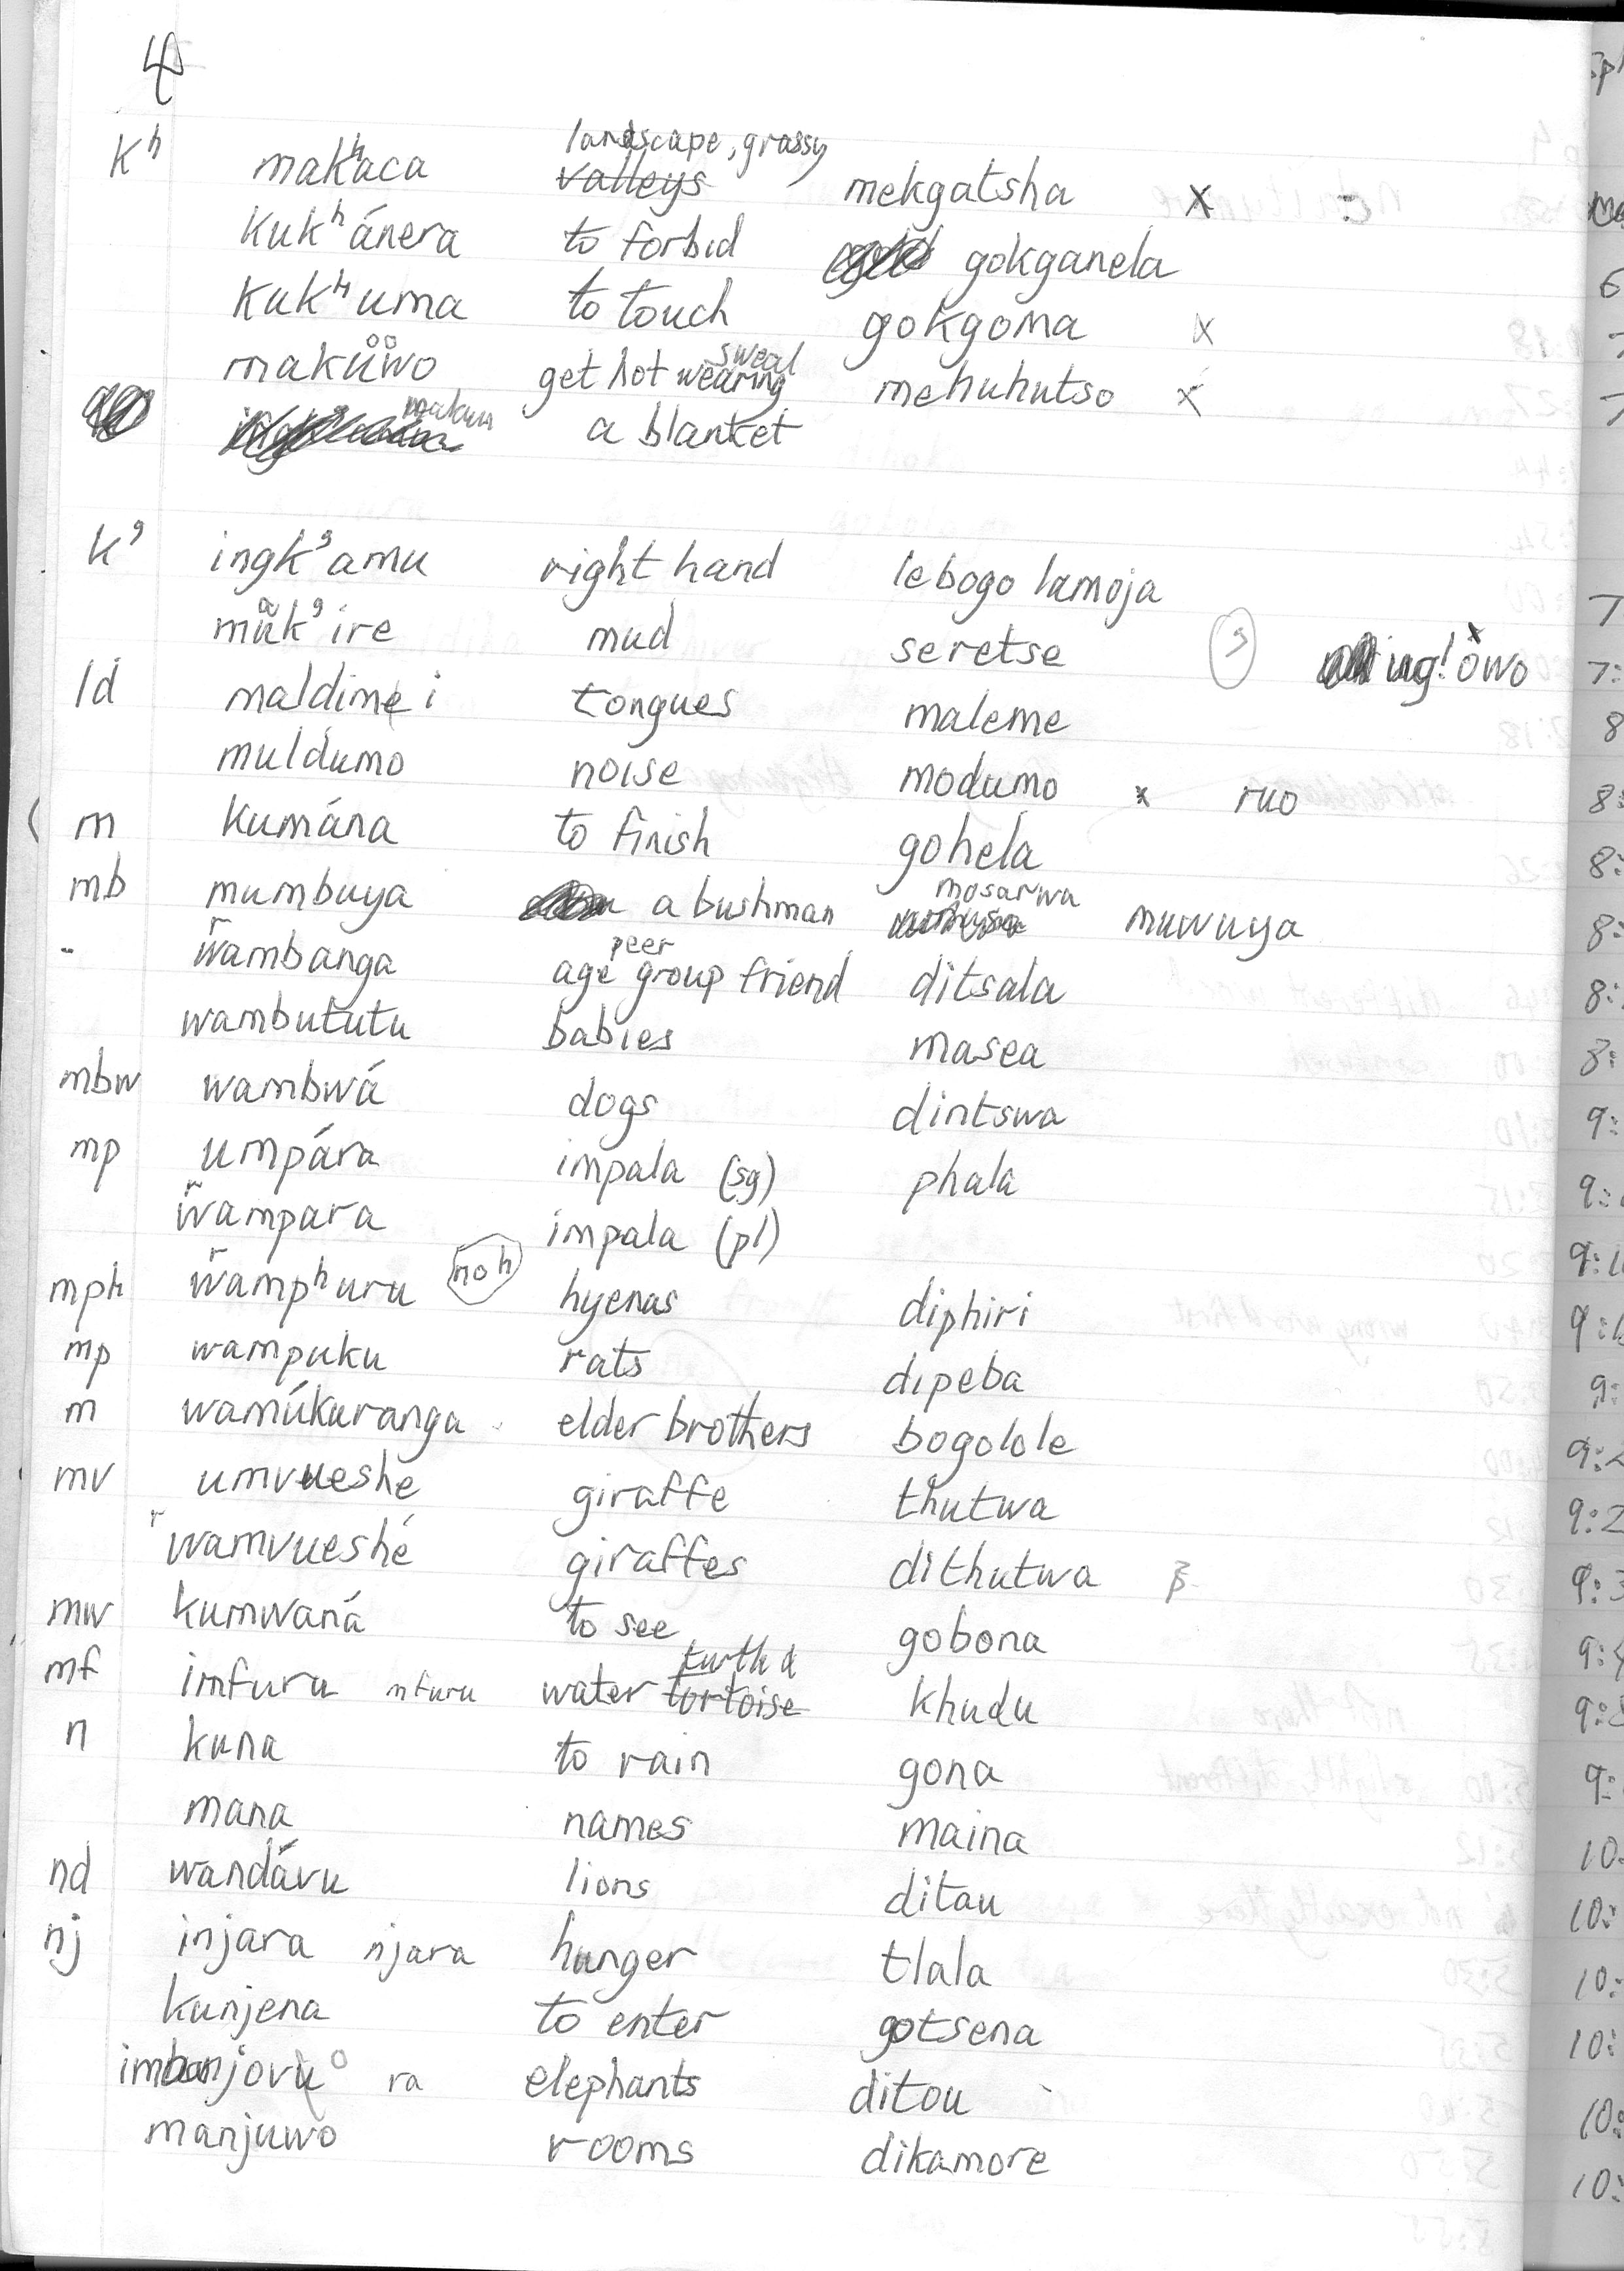 4
landscape, grassy
Kʰ makʰaca valleys mekgatsha x
Kukʰánera to forbid gokganela
Kukʰuma to touch gokgoma x
sweat
makuwo get hot wearing mehuhutso x
a blanket
K' ingk'amu right hand lebogo lamoja
mak'ire mud seretse ing!owo
ld maldimei tongues maleme
muldumo noise modumo x ruo
m kumána to finish gohela
mosarwa
mb mumbuya a bushman muwuya
peer
wambanga age group friend ditsala
wambututu babies masea
mbw wambwá dogs dintswa
mp umpára impala (sg) phala
wampara impala (pl)
mph wampʰuru no h hyenas diphiri
mp wampuku rats dipeba
m wamúkuranga elder brothers bogolole
mv umvueshe giraffe thutwa
r wamvueshé giraffes dithutwa
mw kumwaná to see gobona
mf imfuru mfuru water tortoise khudu
n kuna to rain gona
mana names maina
nd wandávu lions ditau
nj injara njara hunger tlala
kunjena to enter gotsena
ra elephants ditou
manjuwo rooms dikamore